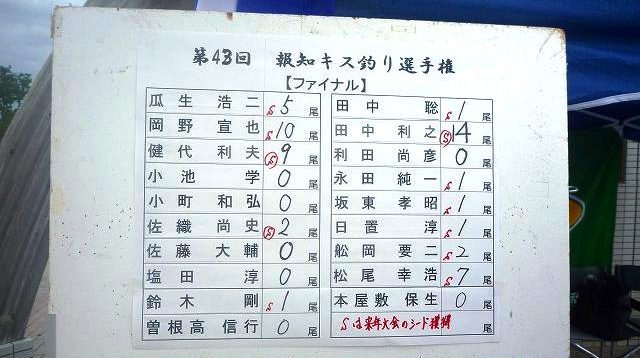 第43回 報知キス釣り選手権
【ファイナル】
瓜生 浩二 S 5 尾
岡野 宣也 S 10 尾
健代 利夫 S 9 尾
小池 学 0 尾
小町 和弘 0 尾
佐織 尚史 S 2 尾
佐藤 大輔 0 尾
塩田 淳 0 尾
鈴木 剛 S 1 尾
曽根高 信行 0 尾
田中 聡 S 1 尾
田中 利之 S 14 尾
利田 尚彦 0 尾
永田 純一 S 1 尾
坂東 孝昭 S 1 尾
日置 淳 S 1 尾
舩岡 要二 S 2 尾
松尾 幸浩 S 7 尾
本屋敷 保生 0 尾
Sは来年大会のシード獲得 尾